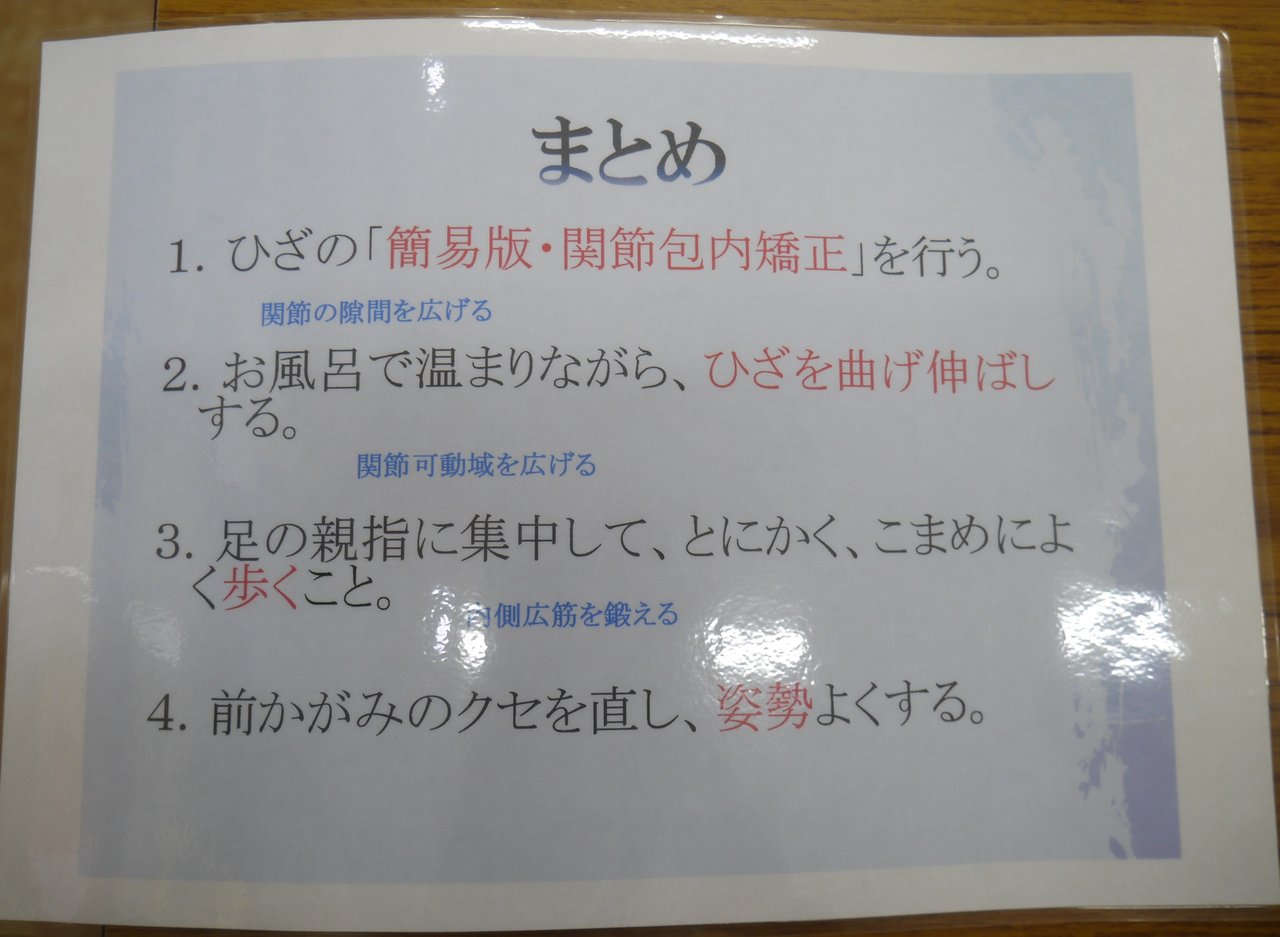 まとめ
1. ひざの「簡易版・関節包内矯正」を行う。
関節の隙間を広げる
2. お風呂で温まりながら、ひざを曲げ伸ばし
する。
関節可動域を広げる
3. 足の親指に集中して、とにかく、こまめによ
く歩くこと。
内側広筋を鍛える
4. 前かがみのクセを直し、姿勢よくする。